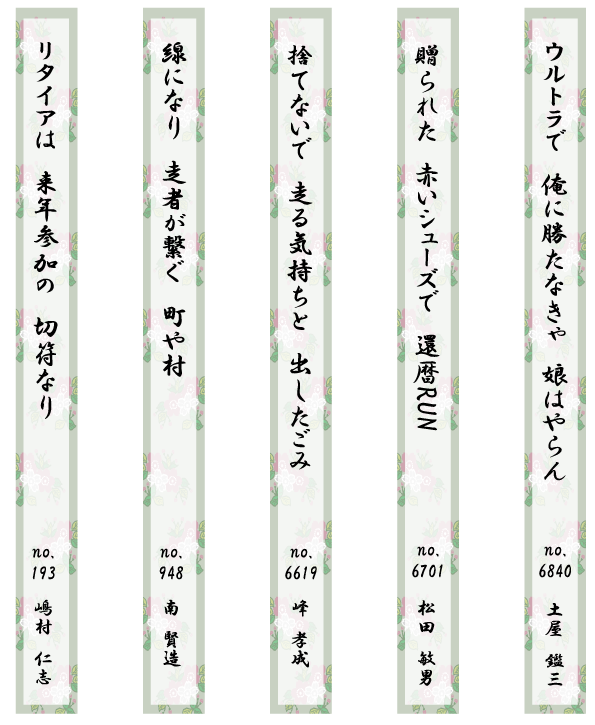 ウルトラで　俺に勝たなきゃ　娘はやらん
no、
6840
土屋　鑑三
贈られた　赤いシューズで　還暦RUN
no、
6701
松田　敏男
捨てないで　走る気持ちと　出したごみ
no、
6619
峰　孝成
線になり　走者が繋ぐ　町や村
no、
948
南　賢造
リタイアは　来年参加の　切符なり
no、
193
嶋村　仁志